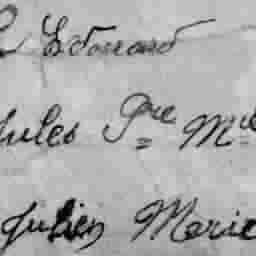 Edouard
Jules Pre M
Julien Marie